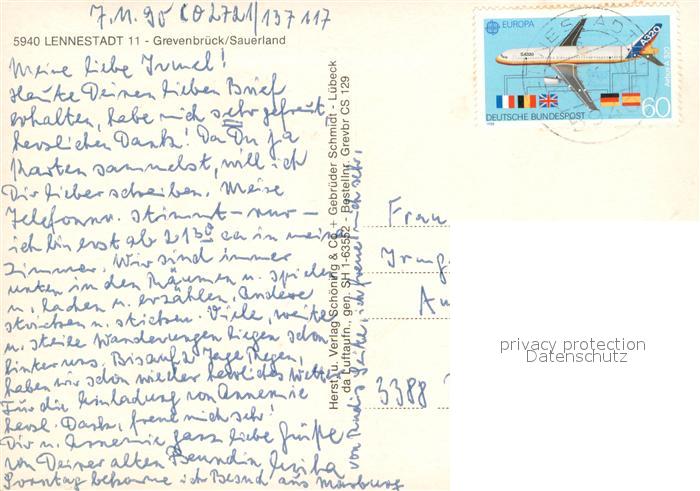 7.11.90 CO 2721/137117
5940 LENNESTADT 11 - Grevenbrück/Sauerland
Meine liebe Irmel!
Heute Deinen lieben Brief
erhalten, habe mich sehr gefreut,
herzlichen Dank! Da Du ja
Karten sammelst, will ich
Dir lieber schreiben. Meine
Telefonnr. stimmt - nur -
ich bin erst ab 21 30 ca in mein
Zimmer. Wir sind immer
unten in den Räumen u. spielen
u. lachen u. erzählen, andere
stricken u. sticken. Viele, weite
u. steile Wanderungen liegen schon
hinter uns. Bis auf 2 Tage Regen,
haben wir schon wieder herrliches Wetter
Für die Einladung von Annemie
herzl. Dank, freue mich sehr!
Dir u. Annemie ganz liebe Grüße
von Deiner alten Freundin
Sonntag bekomme ich Besuch aus Marburg
von ich freue mich sehr,
Herst. u. Verlag Schöning & Co. + Gebrüder Schmidt - Lübeck
da Luftaufn., gen. SH 1-63552 - Bestellnr. Grevbr CS 129
EUROPA
A320
Airbus A320
60
DEUTSCHE BUNDESPOST
1988
Frau
Irmg
3388
privacy protection
Datenschutz